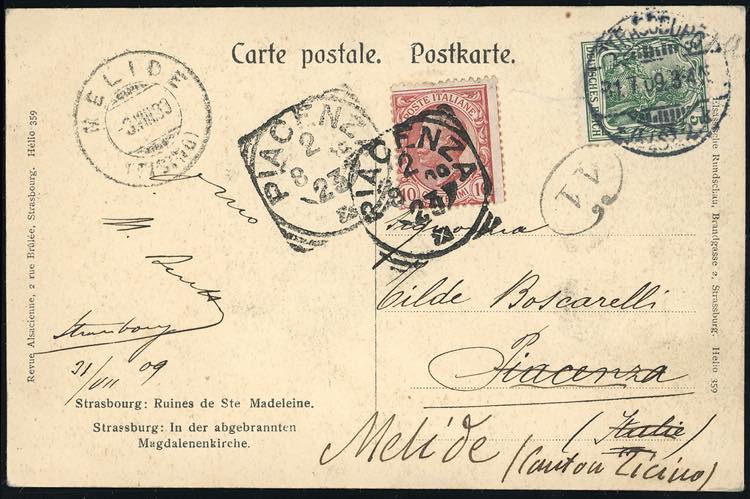 Carte postale. Postkarte.
MELIDE
(TICINO)
PIACENZA
2 8
23
PIACENZA
2 8
23
POSTE ITALIANE
10 10
DEUTSCHES REICH
5
STRASSBURG
31.7.09.
Revue Alsacienne, 2 rue Brûlée, Strasbourg. Hélio 359
Elsässische Rundschau, Brandgasse 2, Strassburg. Helio 359
Strasbourg
31/VII 09
Signorina
Tilde Boscarelli
Piacenza
(Italie)
Melide (Canton Ticino)
Strasbourg: Ruines de Ste Madeleine.
Strassburg: In der abgebrannten
Magdalenenkirche.